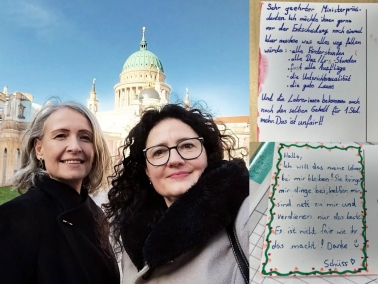 Sehr geehrter Ministerpräsi-
denten. Ich möchte ihnen gerne
vor der Entscheidung noch einmal
klar machen was alles weg fallen
würde:
· alle Förderstunden
· alle Stunden
· fast alle Ausflüge
· die Unterrichtsqualität
· die gute Laune
Und die Lehrerinnen bekommen auch
noch den selben Gehalt für 1 Std.
mehr. Das ist unfair!!
Hallo,
Ich will das meine Lehrer
bei mir bleiben! Sie bringen
mir dinge bei, helfen mir,
sind nett zu mir und
verdienen nur das beste.
Es ist nicht fair wie ihr
das macht! Danke
Schüss